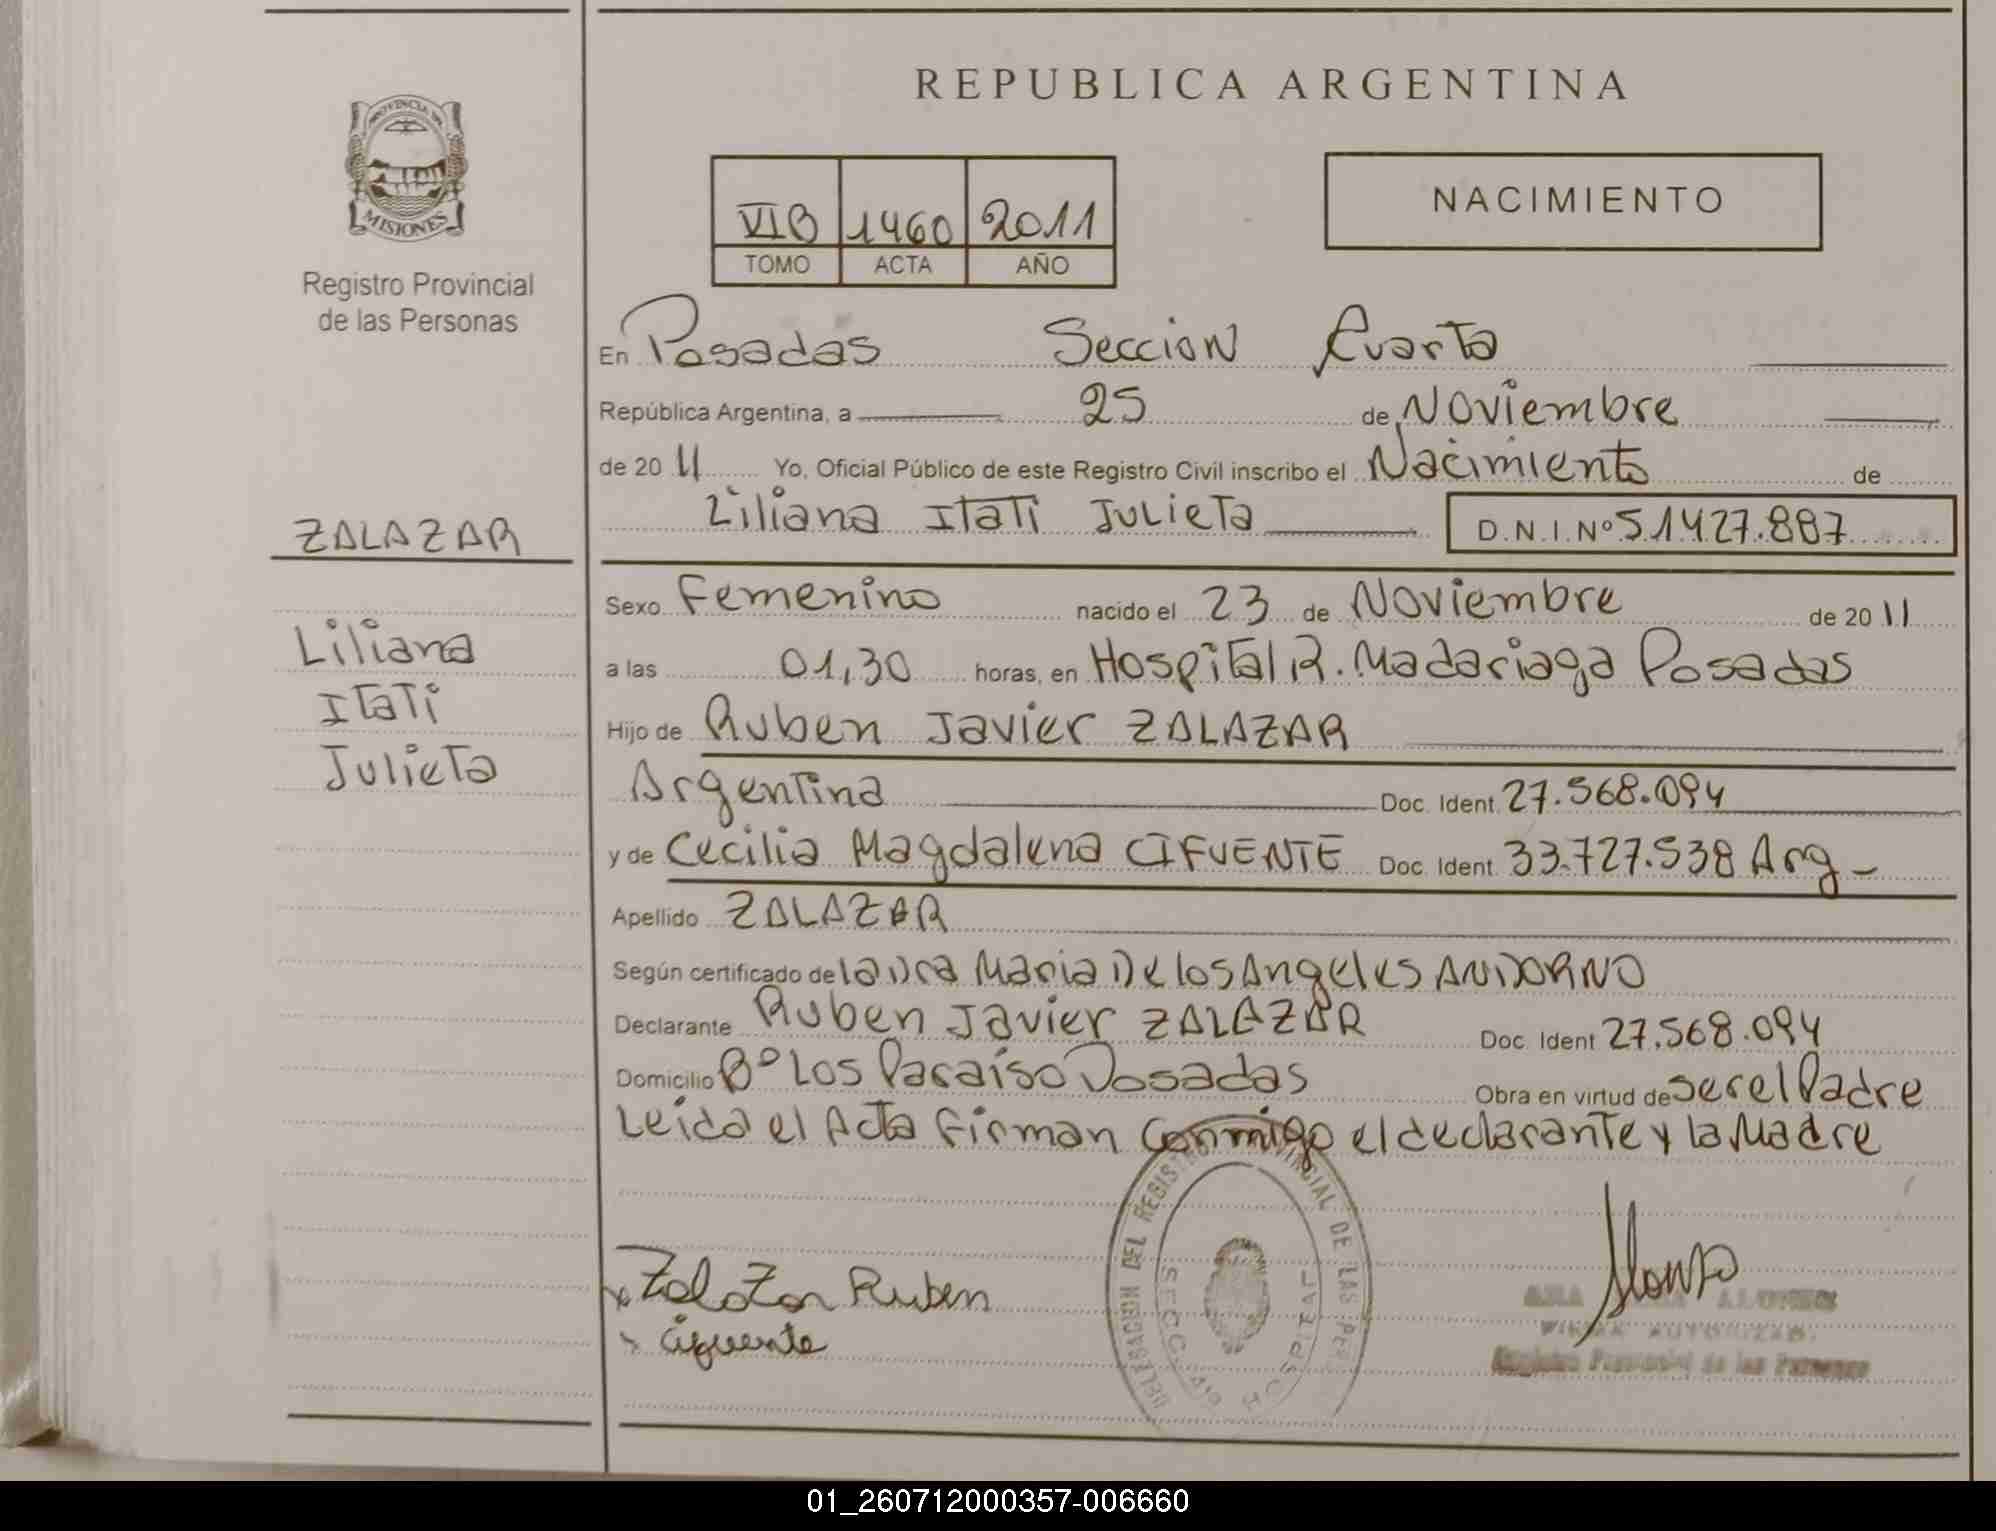 REPUBLICA ARGENTINA
PROVINCIA DE
MISIONES
Registro Provincial
de las Personas
VIB 1460 2011
TOMO ACTA AÑO
NACIMIENTO
En Posadas Seccion Cuarta
República Argentina, a 25 de Noviembre
de 2011 Yo, Oficial Público de este Registro Civil inscribo el Nacimiento de
Liliana Itati Julieta D.N.I.Nº 51.427.887
ZALAZAR
Liliana
Itati
Julieta
Sexo Femenino nacido el 23 de Noviembre de 2011
a las 01,30 horas, en Hospital R. Madariaga Posadas
Hijo de Ruben Javier ZALAZAR
Argentina Doc. Ident. 27.568.094
y de Cecilia Magdalena CIFUENTE Doc. Ident. 33.727.538 Arg
Apellido ZALAZAR
Según certificado de la Dra Maria De los Angeles ANDORNO
Declarante Ruben Javier ZALAZAR Doc. Ident 27.568.094
Domicilio Bº Los Paraiso Posadas Obra en virtud de ser el Padre
Leida el Acta Firman Conmigo el declarante y la Madre
DELEGACION DEL REGISTRO PROVINCIAL DE LAS PER
SECC. 4ta HOSPITAL
Zalazar Ruben
Cifuente
ANA ALONSO
FIRMA AUTORIZADA
Registro Provincial de las Personas
01_260712000357-006660